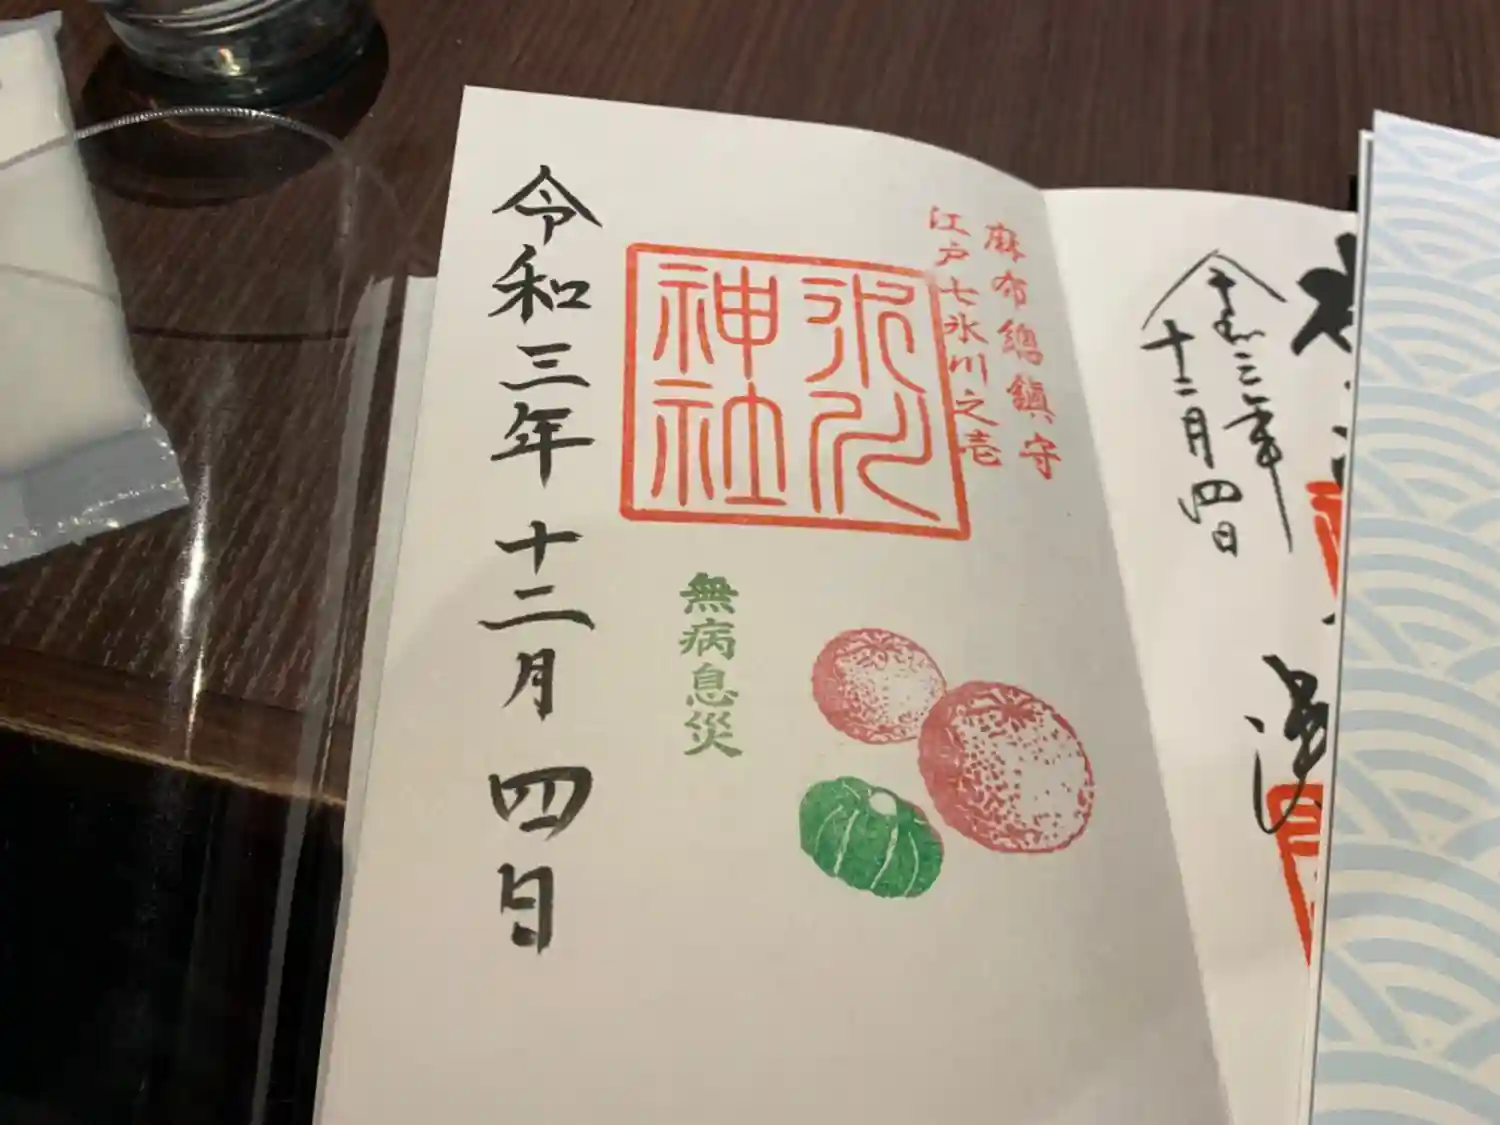 麻布総鎮守
江戸七氷川之壱
氷川
神社
無病息災
令和三年十二月四日
令和三年
十二月四日